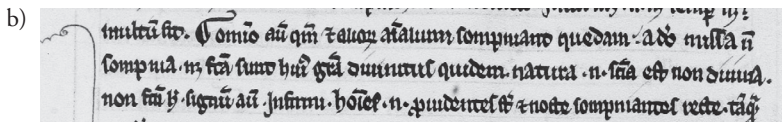 b)
multū fit. Oomīo aū qm̄ ⁊ alioꝝ aīalium sompniant quedam. a dō missa n̄
sompnia. fc̄a sunt huiꝰ gr̄a diuinitus quidem. natura .n. sc̄ia est non diuina.
non fc̄a h̄. signū aū. Infirmi. hoīes .n. ꝓuidentes st̄ ⁊ nocte sompniantes recte. tāq̄